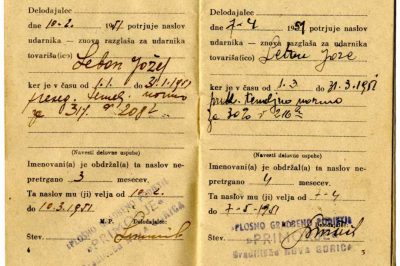 Delodajalec
dne 10.2. 1951 potrjuje naslov
udarnika — znova razglaša za udarnika
tovariša(ico) Lebon Jožef
ker je v času od 1.1. do 31.1.1951
preseg. temelj. normo
za
(Navesti delovne uspehe)
Imenovani(a) je obdržal(a) ta naslov ne-
pretrgano 3 mesecev.
Ta naslov mu (ji) velja od 10.2.
do 10.3.1951
M. P. Delodajalec:
Štev.
4
Delodajalec
dne 7-4 1951 potrjuje naslov
udarnika — znova razglaša za udarnika
tovariša(ico) Lebon Jože
ker je v času od 1.3 do 31.3.1951
temeljno normo
za 30%
(Navesti delovne uspehe)
Imenovani(a) je obdržal(a) ta naslov ne-
pretrgano 4 mesecev.
Ta naslov mu (ji) velja od 7-4
do 7-5-1951
SPLOŠNO GRADBENO PODJETJE
Gradilišče NOVA GORICA
Štev.
5